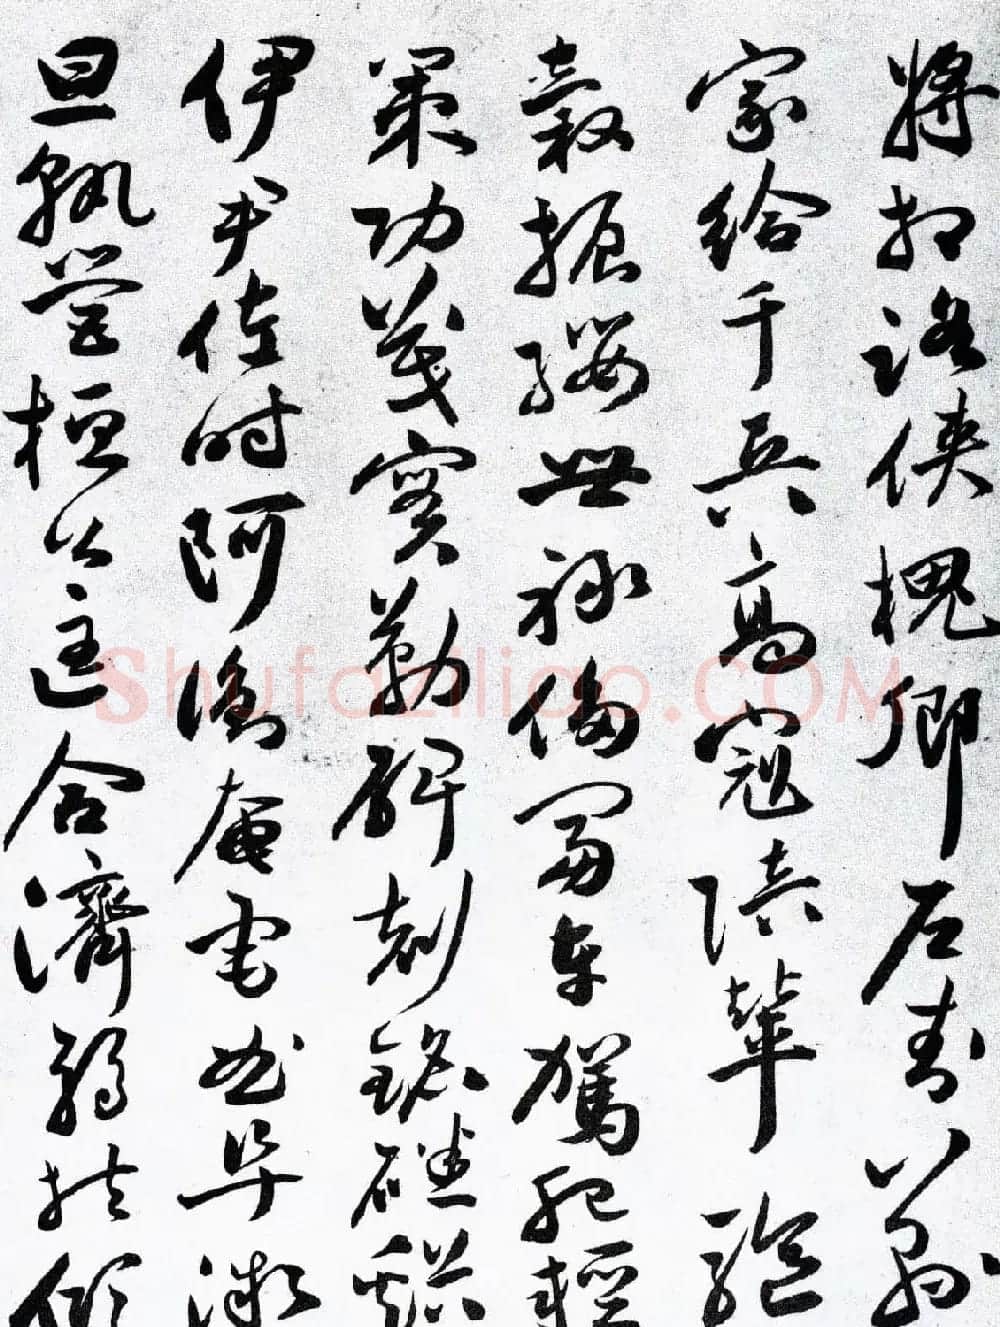 將相路俠槐卿戶封八縣
家給千兵高冠陪輦驅
轂振纓世祿侈富車駕肥輕
策功茂實勒碑刻銘磻溪
伊尹佐時阿衡奄宅曲阜微
旦孰營桓公匡合濟弱扶傾
Shufaziliao.COM